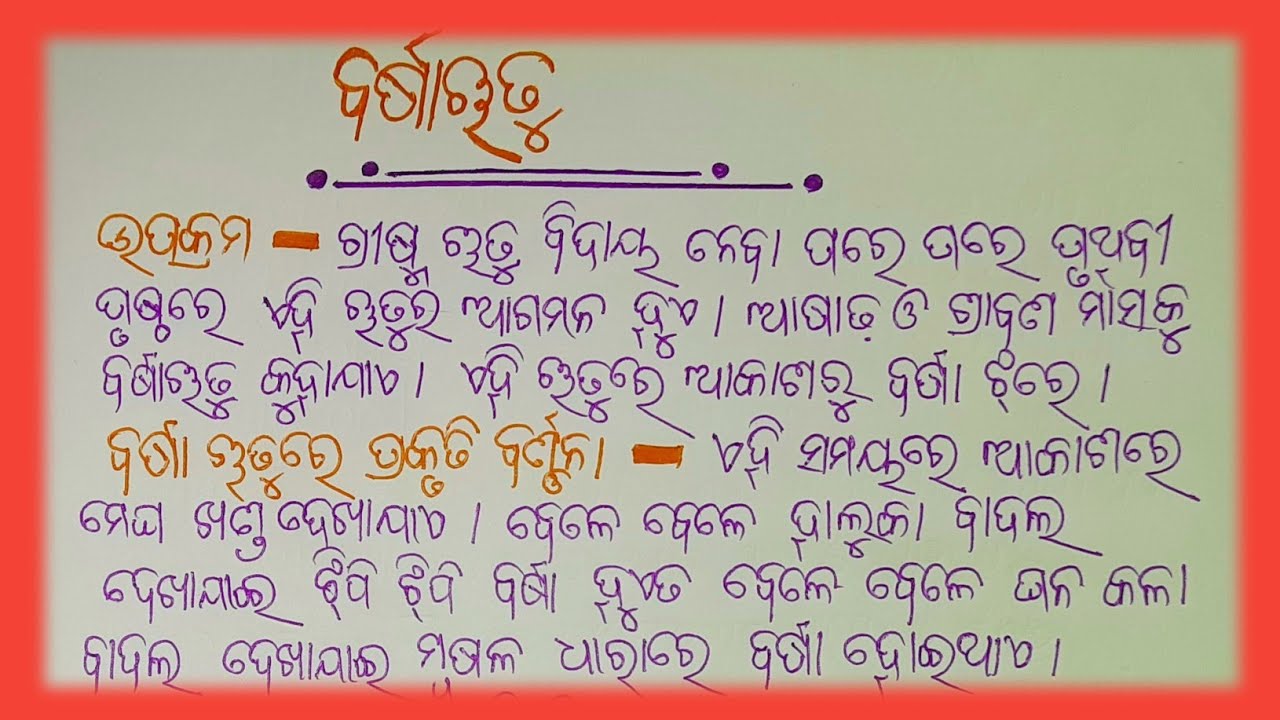 ବର୍ଷାଋତୁ
ଉପକ୍ରମ - ଗ୍ରୀଷ୍ମ ଋତୁ ବିଦାୟ ନେବା ପରେ ପରେ ପୃଥିବୀ
ପୃଷ୍ଠରେ ଏହି ଋତୁର ଆଗମନ ହୁଏ । ଆଷାଢ଼ ଓ ଶ୍ରାବଣ ମାସକୁ
ବର୍ଷାଋତୁ କୁହାଯାଏ । ଏହି ଋତୁରେ ଆକାଶରୁ ବର୍ଷା ଝରେ ।
ବର୍ଷା ଋତୁରେ ପ୍ରକୃତି ବର୍ଣ୍ଣନା - ଏହି ସମୟରେ ଆକାଶରେ
ମେଘ ଖଣ୍ଡ ଦେଖାଯାଏ । ବେଳେ ବେଳେ ହାଲୁକା ବାଦଲ
ଦେଖାଯାଇ ଝିପି ଝିପି ବର୍ଷା ହୁଏତ ବେଳେ ବେଳେ ଘନ କଳା
ବାଦଲ ଦେଖାଯାଇ ମୂଷଳ ଧାରାରେ ବର୍ଷା ହୋଇଥାଏ ।